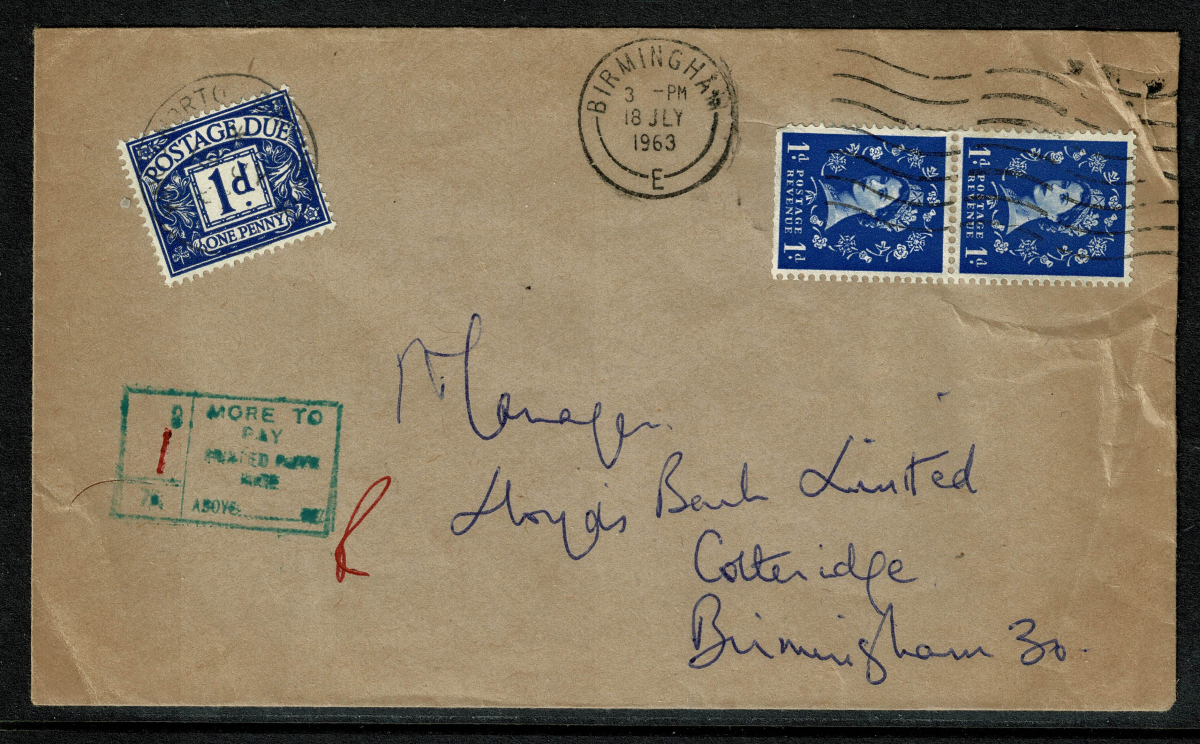 BIRMINGHAM
3 -PM
18 JLY
1963
E
POSTAGE DUE
1d.
ONE PENNY
1d. POSTAGE REVENUE 1d.
1d. POSTAGE REVENUE 1d.
MORE TO
PAY
1
ABOVE
Manager
Lloyds Bank Limited
Cotteridge
Birmingham 30.